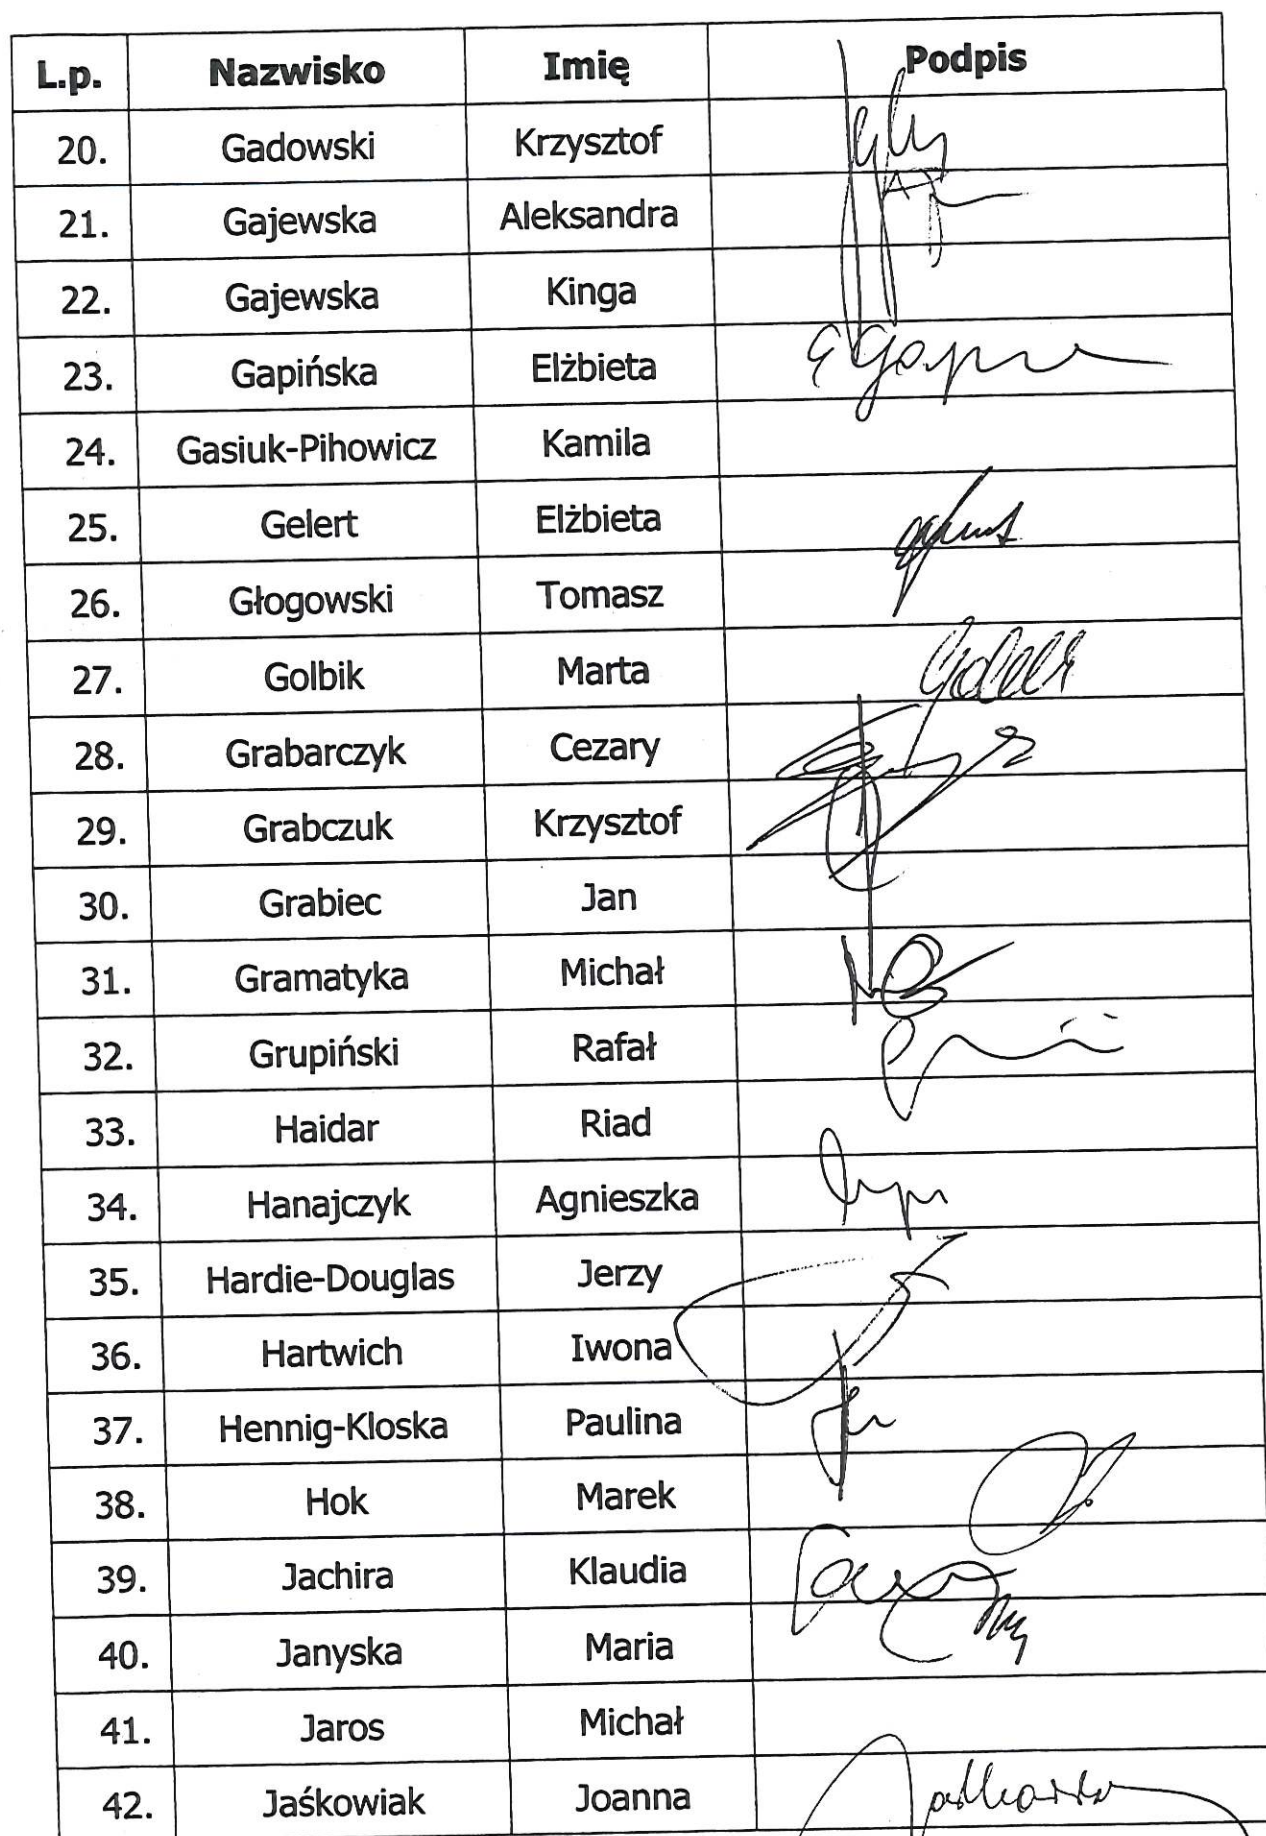 L.p. Nazwisko Imię Podpis
20. Gadowski Krzysztof
21. Gajewska Aleksandra
22. Gajewska Kinga
23. Gapińska Elżbieta
24. Gasiuk-Pihowicz Kamila
25. Gelert Elżbieta
26. Głogowski Tomasz
27. Golbik Marta
28. Grabarczyk Cezary
29. Grabczuk Krzysztof
30. Grabiec Jan
31. Gramatyka Michał
32. Grupiński Rafał
33. Haidar Riad
34. Hanajczyk Agnieszka
35. Hardie-Douglas Jerzy
36. Hartwich Iwona
37. Hennig-Kloska Paulina
38. Hok Marek
39. Jachira Klaudia
40. Janyska Maria
41. Jaros Michał
42. Jaśkowiak Joanna